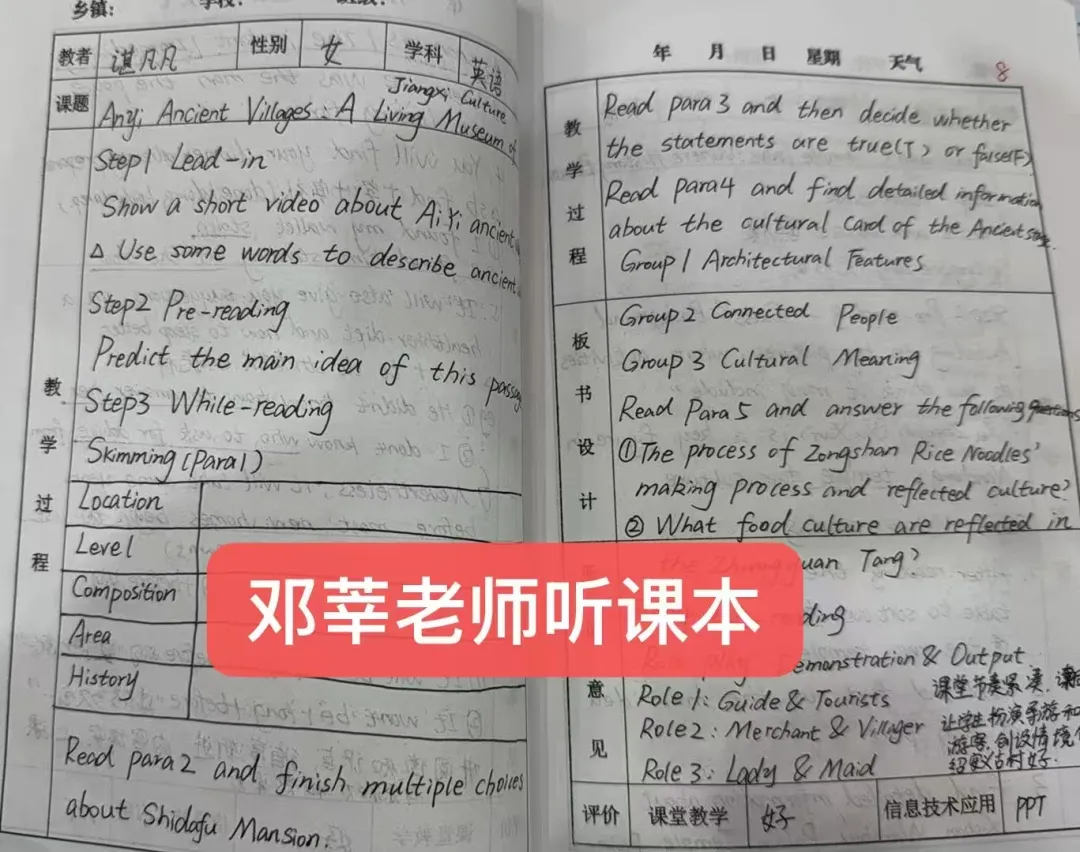 乡镇：
教者 谌凡凡 性别 女 学科 英语
课题 Anyi Ancient Villages: A Living Museum of Jiangxi Culture
教学过程
Step1 Lead-in
Show a short video about AiYi ancient
△ Use some words to describe ancient
Step2 Pre-reading
Predict the main idea of this passage
Step3 While-reading
Skimming (Para1)
Location
Level
Composition
Area
History
Read para2 and finish multiple choices
about Shidafu Mansion.
年 月 日 星期 天气
8
教学过程
Read para3 and then decide whether
the statements are true(T) or false(F).
Read para4 and find detailed information
about the cultural Card of the Ancient
Group1 Architectural Features
板书设计
Group2 Connected People
Group3 Cultural Meaning
Read Para5 and answer the following questions
①The process of Zongshan Rice Noodles'
making process and reflected culture?
② What food culture are reflected in
Tang?
Demonstration & Output
意见
Role1: Guide & Tourists
Role2: Merchant & Villager
Role3: Lady & Maid
课堂节奏紧凑，
让学生扮演导游和
游客，创设情境
绍安义古村好.
评价 课堂教学 好 信息技术应用 PPT
邓莘老师听课本